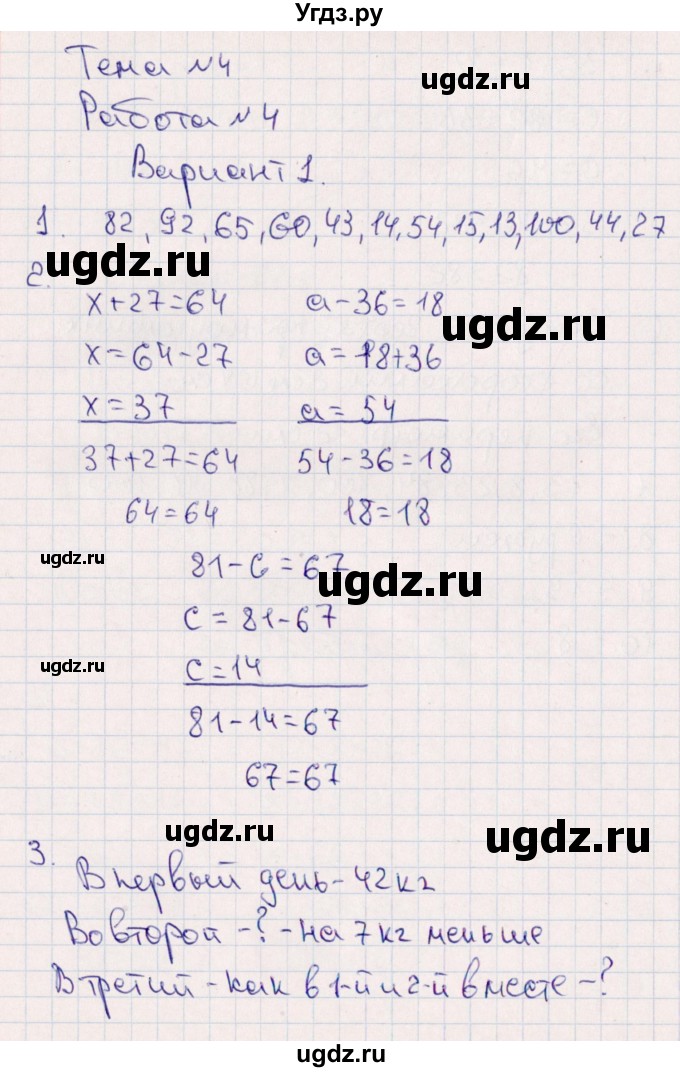 Угдз.ру
Тема №4
ugdz.ru
Работа №4
Вариант 1.
1. 82, 92, 65, 60, 43, 14, 54, 15, 13, 100, 44, 27
ugdz.ru
2.
x+27=64 a-36=18
ugdz.ru
x=64-27 a=18+36
x=37 a=54
37+27=64 54-36=18
64=64 18=18
ugdz.ru 81-c=67
ugdz.ru
c=81-67
ugdz.ru c=14
81-14=67
67=67
ugdz.ru ugdz.ru
3. В первый день-42кг
Во второй -?-на 7кг меньше
В третий-как в 1-й и 2-й вместе-?
ugdz.ru